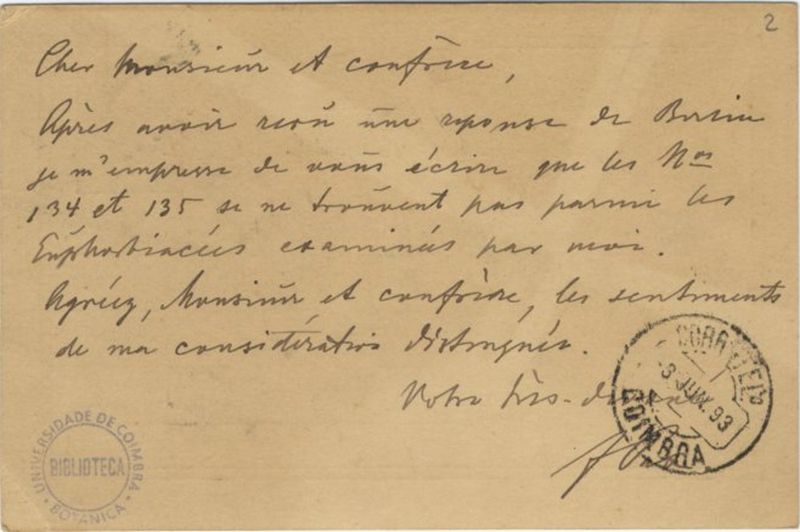 2
Cher Monsieur et confrère,
Après avoir reçu une reponse de Berlin
je m'empresse de vous écrire que les Nos
134 et 135 se ne trouvent pas parmi les
Euphorbiacées examinées par moi.
Agréez, Monsieur et confrère, les sentiments
de ma considération distinguée.
Votre très-
CORREIO
8 JUN. 93
COIMBRA
UNIVERSIDADE DE COIMBRA
BIBLIOTECA
BOTANICA